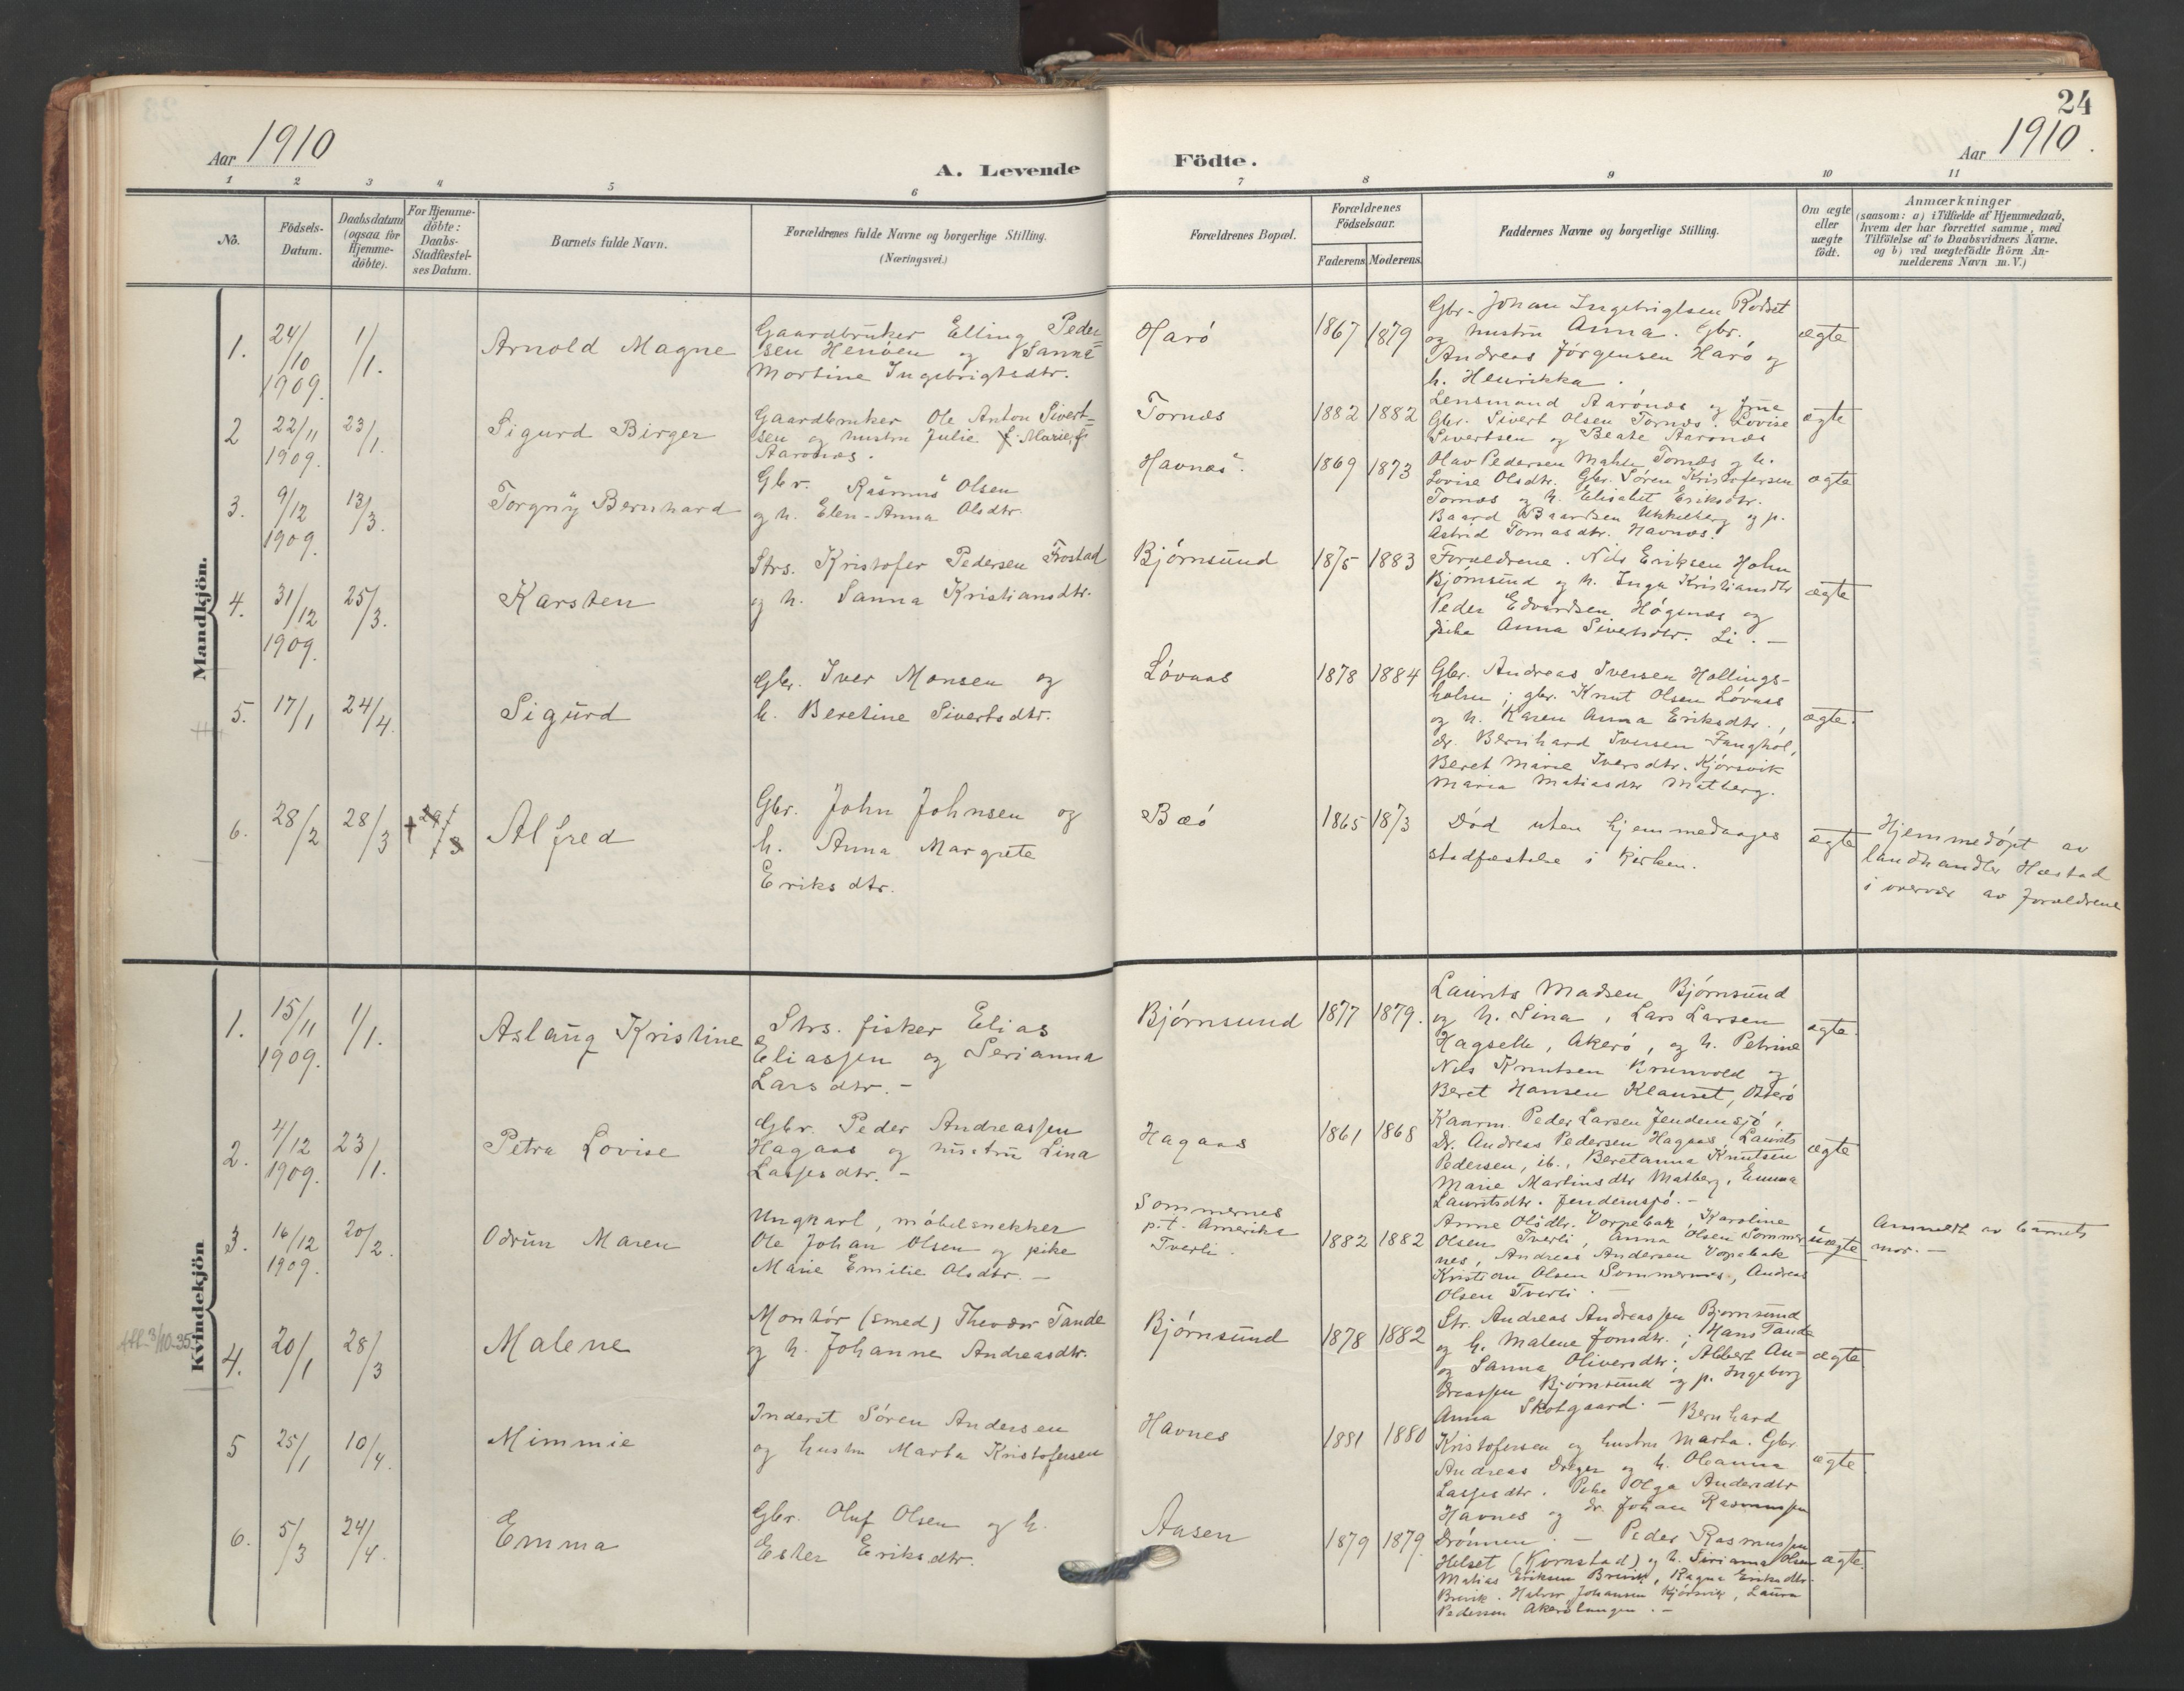 24
Aar 1910
Aar 1910.
A. Levende Födte.
1 2 3 4 5 6 7 8 9 10 11
No.
Födsels-
Datum.
Daabsdatum
(ogsaa for
Hjemme-
döbte).
For Hjemme-
döbte:
Daabs-
Stadfæstel-
ses Datum.
Barnets fulde Navn.
Forældrenes fulde Navne og borgerlige Stilling.
(Næringsvei.)
Forældrenes Bopæl.
Forældrenes
Födselsaar.
Faderens. Moderens.
Faddernes Navne og borgerlige Stilling.
Om ægte
eller
uægte
födt.
Anmærkninger
(saasom: a) i Tilfælde af Hjemmedaab,
hvem der har forrettet samme, med
Tilföielse af to Daabsvidners Navne.
og b) ved uægtefödte Börn An-
melderens Navn m. V.)
Mandkjön.
1.
24/10
1909.
1/1.
Arnold Magne
Gaardbruker Elling Peder-
sen Henöen og Sanna
Martine Ingebrigtsdtr.
Harö
1867 1879
Gbr. Johan Ingebrigtsen Rödset
og hustru Anna. Gbr.
Andreas Jörgensen Harö og
h. Henrikka.
ægte
2
22/11
1909.
23/1.
Sigurd Birger
Gaardbruker Ole Anton Sivert-
sen og hustru Julie Marie f.
Aarönæs.
Tornæs
1882 1882
Lensmand Aarönæs og frue
Gbr. Sivert Olsen Tornæs. Lovise
Sivertsen og Beate Aarönæs
ægte
3.
9/12
1909.
13/3.
Torgny Bernhard
Gbr. Rasmus Olsen
og h. Elen-Anna Olsdtr.
Havnæs.
1869 1873
Olav Pedersen Malen Tornæs og h.
Lovise Olsdtr. Gbr. Sören Kristofersen
Tornæs og h. Elisabet Eriksdtr.
Baard Baardsen Ukkelberg og p.
Astrid Tomasdtr. Havnæs.
ægte
4.
31/12
1909.
25/3.
Karsten
Strs. Kristofer Pedersen Frostad
og h. Sanna Kristiansdtr.
Björnsund
1875 1883
Forældrene. Nils Eriksen Holm
Björnsund og h. Inga Kristiansdtr
Peder Edvardsen Högnæs og
pike Anna Sivertsdtr. Li. -
ægte
5.
17/1
24/4.
Sigurd
Gbr. Iver Monsen og
h. Beretine Sivertsdtr.
Lövaas
1878 1884
Gbr. Andreas Iversen Hollings-
holm; gbr. Knut Olsen Lövaas
og h. Karen Anna Eriksdtr.,
dr. Bernhard Iversen Fanghol,
Beret Marie Iversdtr. Kjörsvik
Maria Matiasdtr Malberg.
ægte.
6.
28/2
28/3
† 29/3
Alfred
Gbr. John Johnsen og
h. Anna Margrete
Eriksdtr.
Bæö
1865 1873
Död uten hjemmedaapes
stadfæstelse i Kirken.
ægte
Hjemmedöpt av
landhandler Hæstad
i overvær av forældrene
Kvindekjön
1.
15/11
1909.
1/1.
Aslaug Kristine
Strs. fisker Elias
Eliassen og Serianna
Larsdtr. -
Björnsund
1877 1879.
Laurits Madsen Björnsund
og h. Lina, Lars Larsen
Hagselle, Akerö, og h. Petrine
Nils Knutsen Krunvold og
Beret Hansen Klauset, Otterö
ægte.
2.
4/12
1909.
23/1.
Petra Lovise
Gbr. Peder Andreassen
Hagaas og hustru Lina
Lassesdtr. -
Hagaas
1861 1868
Kaarm. Peder Larsen Jendemsjö,
Dr. Andreas Pedersen Hagaas, Laurits
Pedersen, ib., Beretanna Knutsen
Marie Martinsdtr Malberg, Emma
Lauritsdtr. Jendemsjö. -
ægte
3.
16/12
1909.
20/2.
Odrun Maren
Ungkarl, möbelsnekker
Ole Johan Olsen og pike
Marie Emilie Olsdtr. -
Sommernes
p.t. Amerika
Tverli.
1882 1882
Anne Olsdtr. Vorpebak, Karoline
Olsen Tverli, Anna Olsen Sommer-
nes, Andreas Andersen Vorpebak
Kristian Olsen Sommernes, Andreas
Olsen Tverli. -
uægte
Anmeldt av barnets
mor. -
Att. 3/10-35
4.
20/1
28/3
Malene
Montör (smed) Theodor Tande
og h. Johanne Andreasdtr.
Björnsund
1878 1882
Str. Andreas Andreassen Björnsund
og h. Malene Jonsdtr.; Hans Tande
og Sanna Oliversdtr; Albert An-
dreassen Björnsund og p. Ingeborg
Anna Skotgaard. -
ægte
5
25/1
10/4.
Mimmie
Inderst Sören Andersen
og hustru Marta Kristofersen
Havnes
1881 1880
Bernhard
Kristofersen og hustru Marta. Gbr
Andreas Drages og h. Oleanna
Lassesdtr. Pike Olga Andersdtr
Havnes og dr. Johan Rasmussen
Drönnen. -
ægte
6.
5/3
24/4.
Emma
Gbr. Oluf Olsen og h.
Ester Eriksdtr.
Aasen
1879 1879.
Peder Rasmussen
Helset (Kornstad) og h. Serianna Olsen
Matias Eriksen Brevik, Ragna Eriksdtr.
Brevik. Halvor Johansen Kjörsvik, Laura
Pedersen Akerötangen. -
ægte.